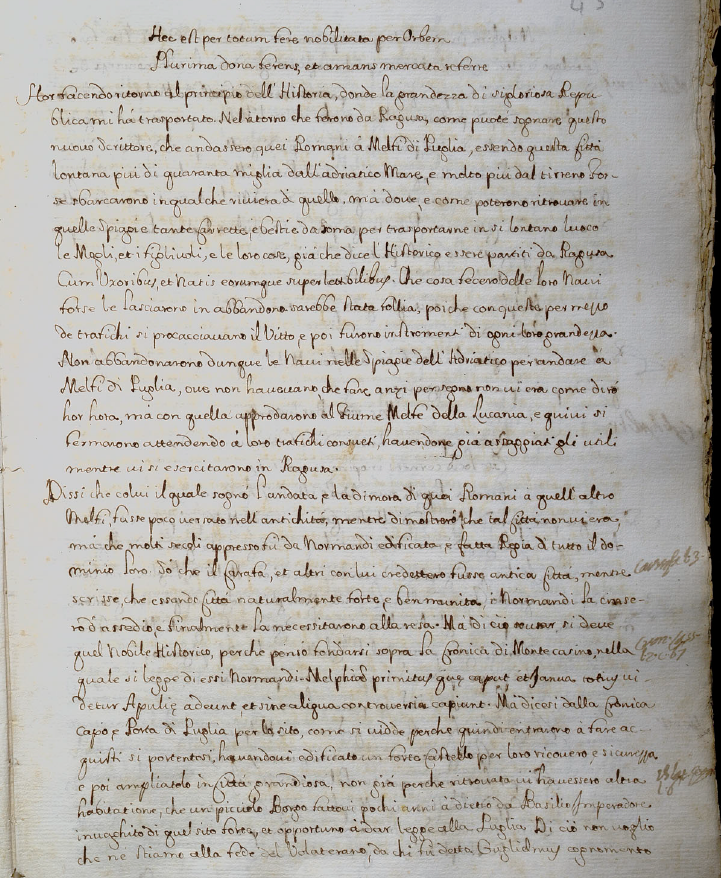 Hec est per totum fere nobilitata per Orbem
Plurima dona ferens, et amans mercata referre
Hor facendo ritorno al principio dell'Historia, donde la grandezza di si gloriosa Repu
blica mi hà trasportato. Nel ritorno che ferono da Ragusa, come puote sognare questo
nuovo scrittore, che andassero quei Romani à Melfi di Puglia, essendo questa Città
lontana piu di quaranta miglia dall'adriatico Mare, e molto piu dal tirreno for-
se sbarcarono in qualche riviera di quello, mà dove, e come poterono ritrovare in
quelle spiagie tante carrette, e bestie da soma per trasportarne in si lontano luoco
le Mogli, et i figlivoli, e le loro cose, già che dice l'Historico essere partiti da Ragusa
Cum Uxoribus, et Natis eorumque superlectilibus. Che cosa fecero delle loro Navi
forse le lasciarono in abbandono sarebbe stata follia, poiche con queste per mezzo
de trafichi si procacciavano il Vitto, e poi furono instromenti di ogni loro grandezza.
Non abbandonarono dunque le Navi nelle spiagie dell'Adriatico per andare à
Melfi di Puglia, ove non havevano che fare, anzi per sogno non vi era come dirò
hor hora, mà con quella approdarono al fiume Melfe della Lucania, e quivi si
fermarono attendendo à loro trafichi consueti, havendone già assaggiati gli utili
mentre vi si esercitarono in Ragusa.
Dissi che colui il quale sognò l'andata, e la dimora di quei Romani à quell'altro
Melfi, fusse poco versato nell'antichità, mentre dimostrerò che tal Città non vi era,
mà che molti secoli appresso fù da Normandi edificata, e fatta Regia di tutto il do-
minio loro. Sò che il Carafa, et altri con lui credettero fusse antica Città, mentre
scrisse, che essendo Città naturalmente forte, e ben munita, i Normandi la cinse-
ro d'assedio, e finalmente la necessitarono alla resa. Mà di ciò scusar si deve
quel Nobile Historico, perche pensò fondarsi sopra la Cronica di Montecasino, nella
quale si legge di essi Normandi = Melphiã primitus que caput et Janua totius vi-
detur Apulię adeunt, et sine aliqua controversia capiunt. Mà dicesi dalla Cronica
capo, e Porta di Puglia per lo sito, come si vidde perche quindi entrarono à fare ac-
quisti si portentosi, havendovi edificato un forte Castello per loro ricovero, e sicurezza
e poi ampliatolo in Città grandiosa, non già perche ritrovata vi havessero altra
habitatione, che un piccolo Borgo fattovi pochi anni à dietro da Basilio Imperadore
invaghito di quel sito forte, et opportuno à dar legge alla Puglia. Di ciò non voglio
che ne stiamo alla fede del Volaterano, da chi fù detta Guglielmus cognomento